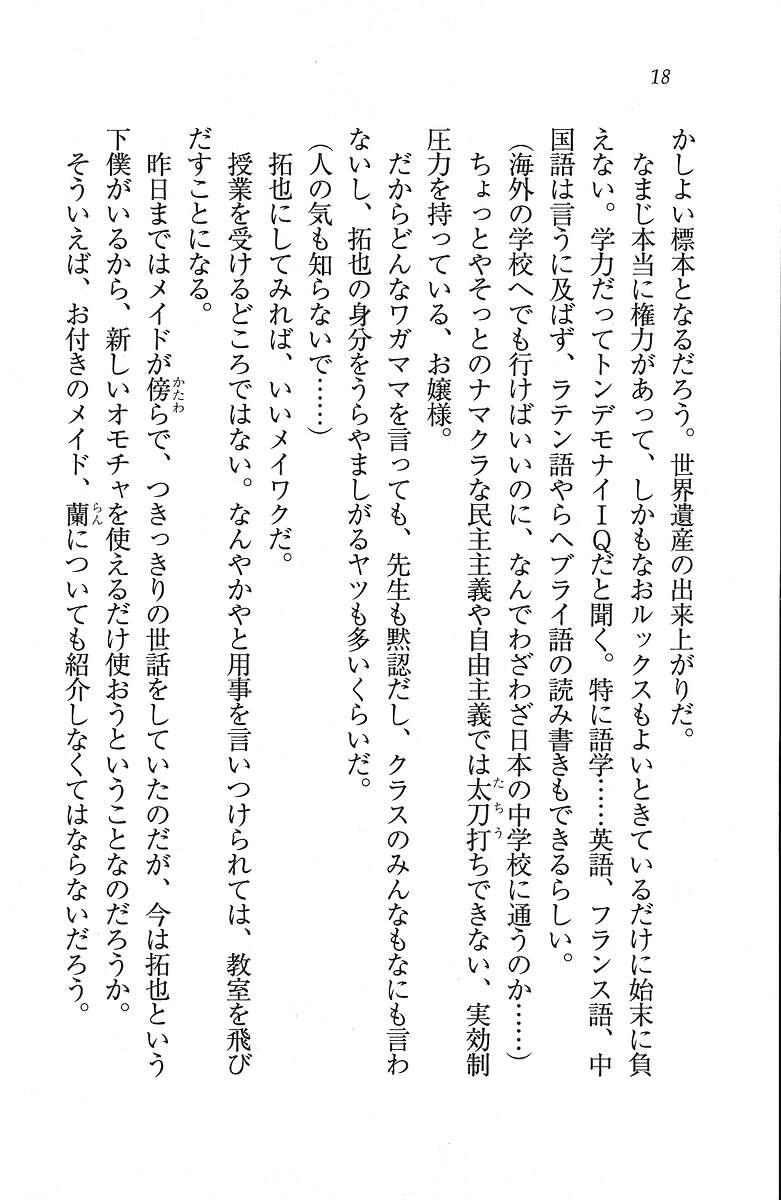 18
かしよい標本となるだろう。世界遺産の出来上がりだ。
なまじ本当に権力があって、しかもなおルックスもよいときているだけに始末に負
えない。学力だってトンデモナイＩＱだと聞く。特に語学……英語、フランス語、中
国語は言うに及ばず、ラテン語やらヘブライ語の読み書きもできるらしい。
（海外の学校へでも行けばいいのに、なんでわざわざ日本の中学校に通うのか……）
ちょっとやそっとのナマクラな民主主義や自由主義では太刀打ちできない、実効制
圧力を持っている、お嬢様。
だからどんなワガママを言っても、先生も黙認だし、クラスのみんなもなにも言わ
ないし、拓也の身分をうらやましがるヤツも多いくらいだ。
（人の気も知らないで……）
拓也にしてみれば、いいメイワクだ。
授業を受けるどころではない。なんやかやと用事を言いつけられては、教室を飛び
だすことになる。
昨日まではメイドが傍らで、つきっきりの世話をしていたのだが、今は拓也という
下僕がいるから、新しいオモチャを使えるだけ使おうということなのだろうか。
そういえば、お付きのメイド、蘭についても紹介しなくてはならないだろう。